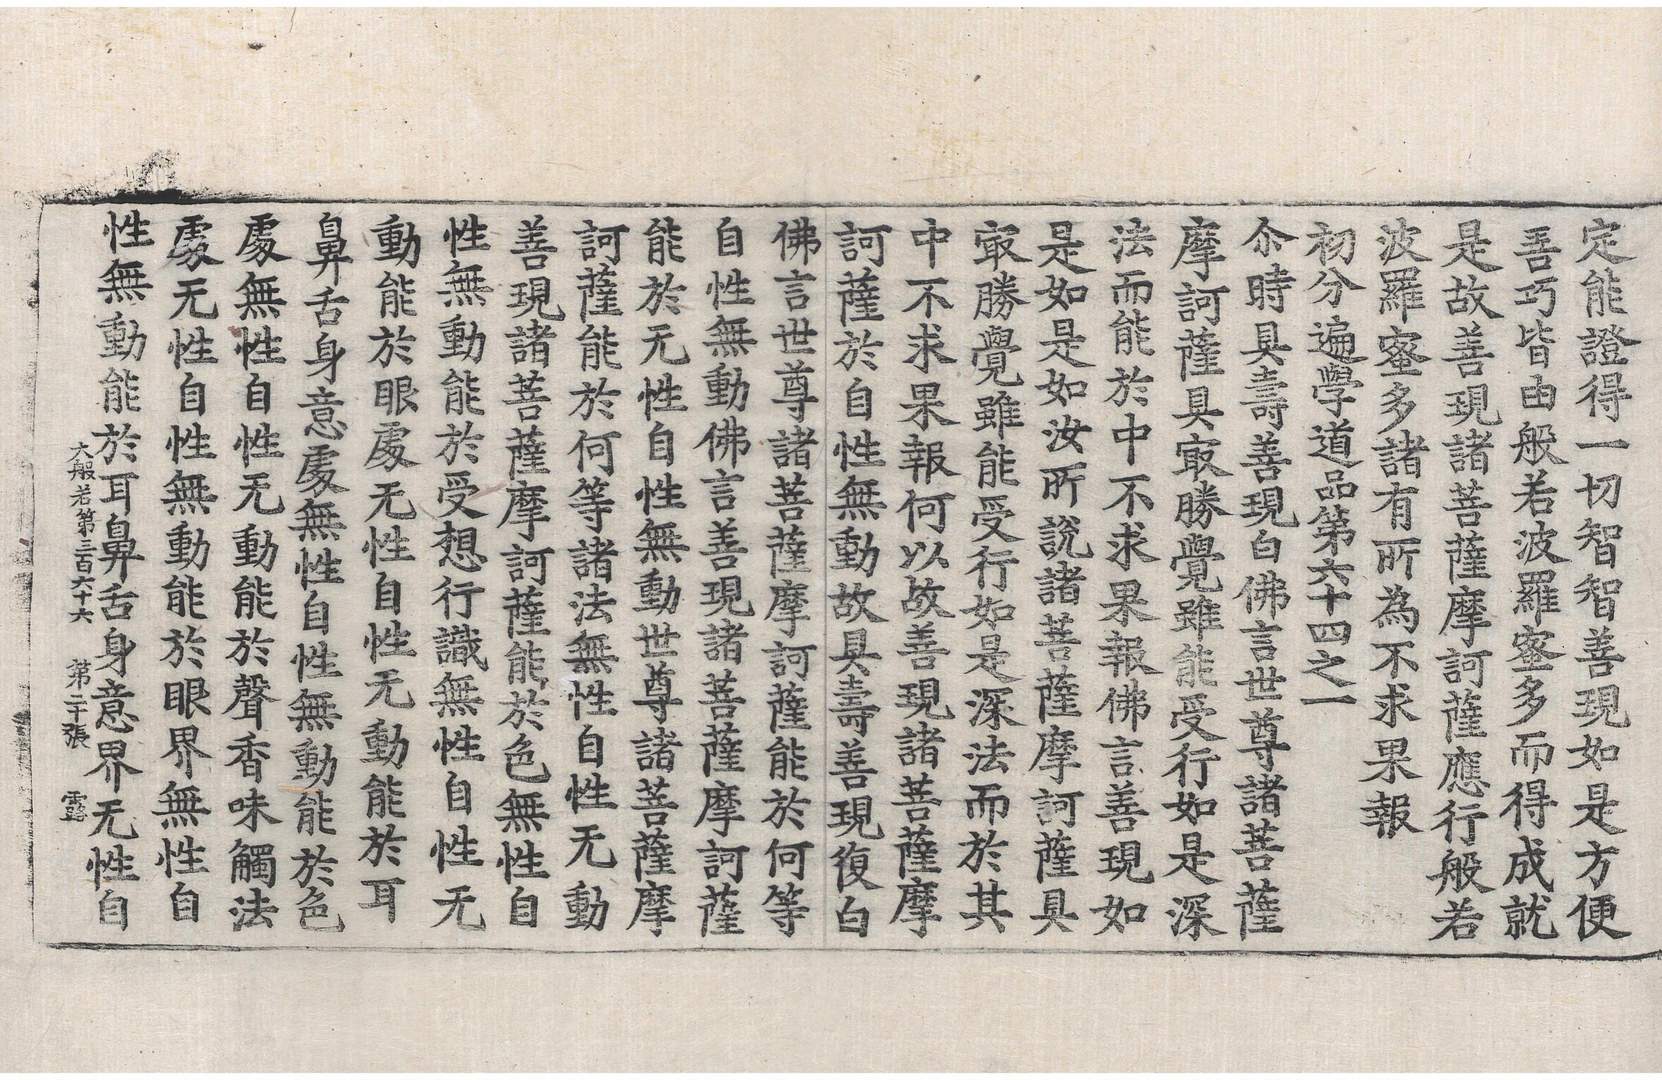 定能證得一切智智善現如是方便
善巧皆由般若波羅蜜多而得成就
是故善現諸菩薩摩訶薩應行般若
波羅蜜多諸有所為不求果報
初分遍學道品第六十四之一
尒時具壽善現白佛言世尊諸菩薩
摩訶薩具㝡勝覺雖能受行如是深
法而能於中不求果報佛言善現如
是如是如汝所說諸菩薩摩訶薩具
㝡勝覺雖能受行如是深法而於其
中不求果報何以故善現諸菩薩摩
訶薩於自性無動故具壽善現復白
佛言世尊諸菩薩摩訶薩能於何等
自性無動佛言善現諸菩薩摩訶薩
能於无性自性無動世尊諸菩薩摩
訶薩能於何等諸法無性自性无動
善現諸菩薩摩訶薩能於色無性自
性無動能於受想行識無性自性无
動能於眼處无性自性无動能於耳
鼻舌身意處無性自性無動能於色
處無性自性无動能於聲香味觸法
處无性自性無動能於眼界無性自
性無動能於耳鼻舌身意界无性自
大般若第三百六十六 第二十張 露